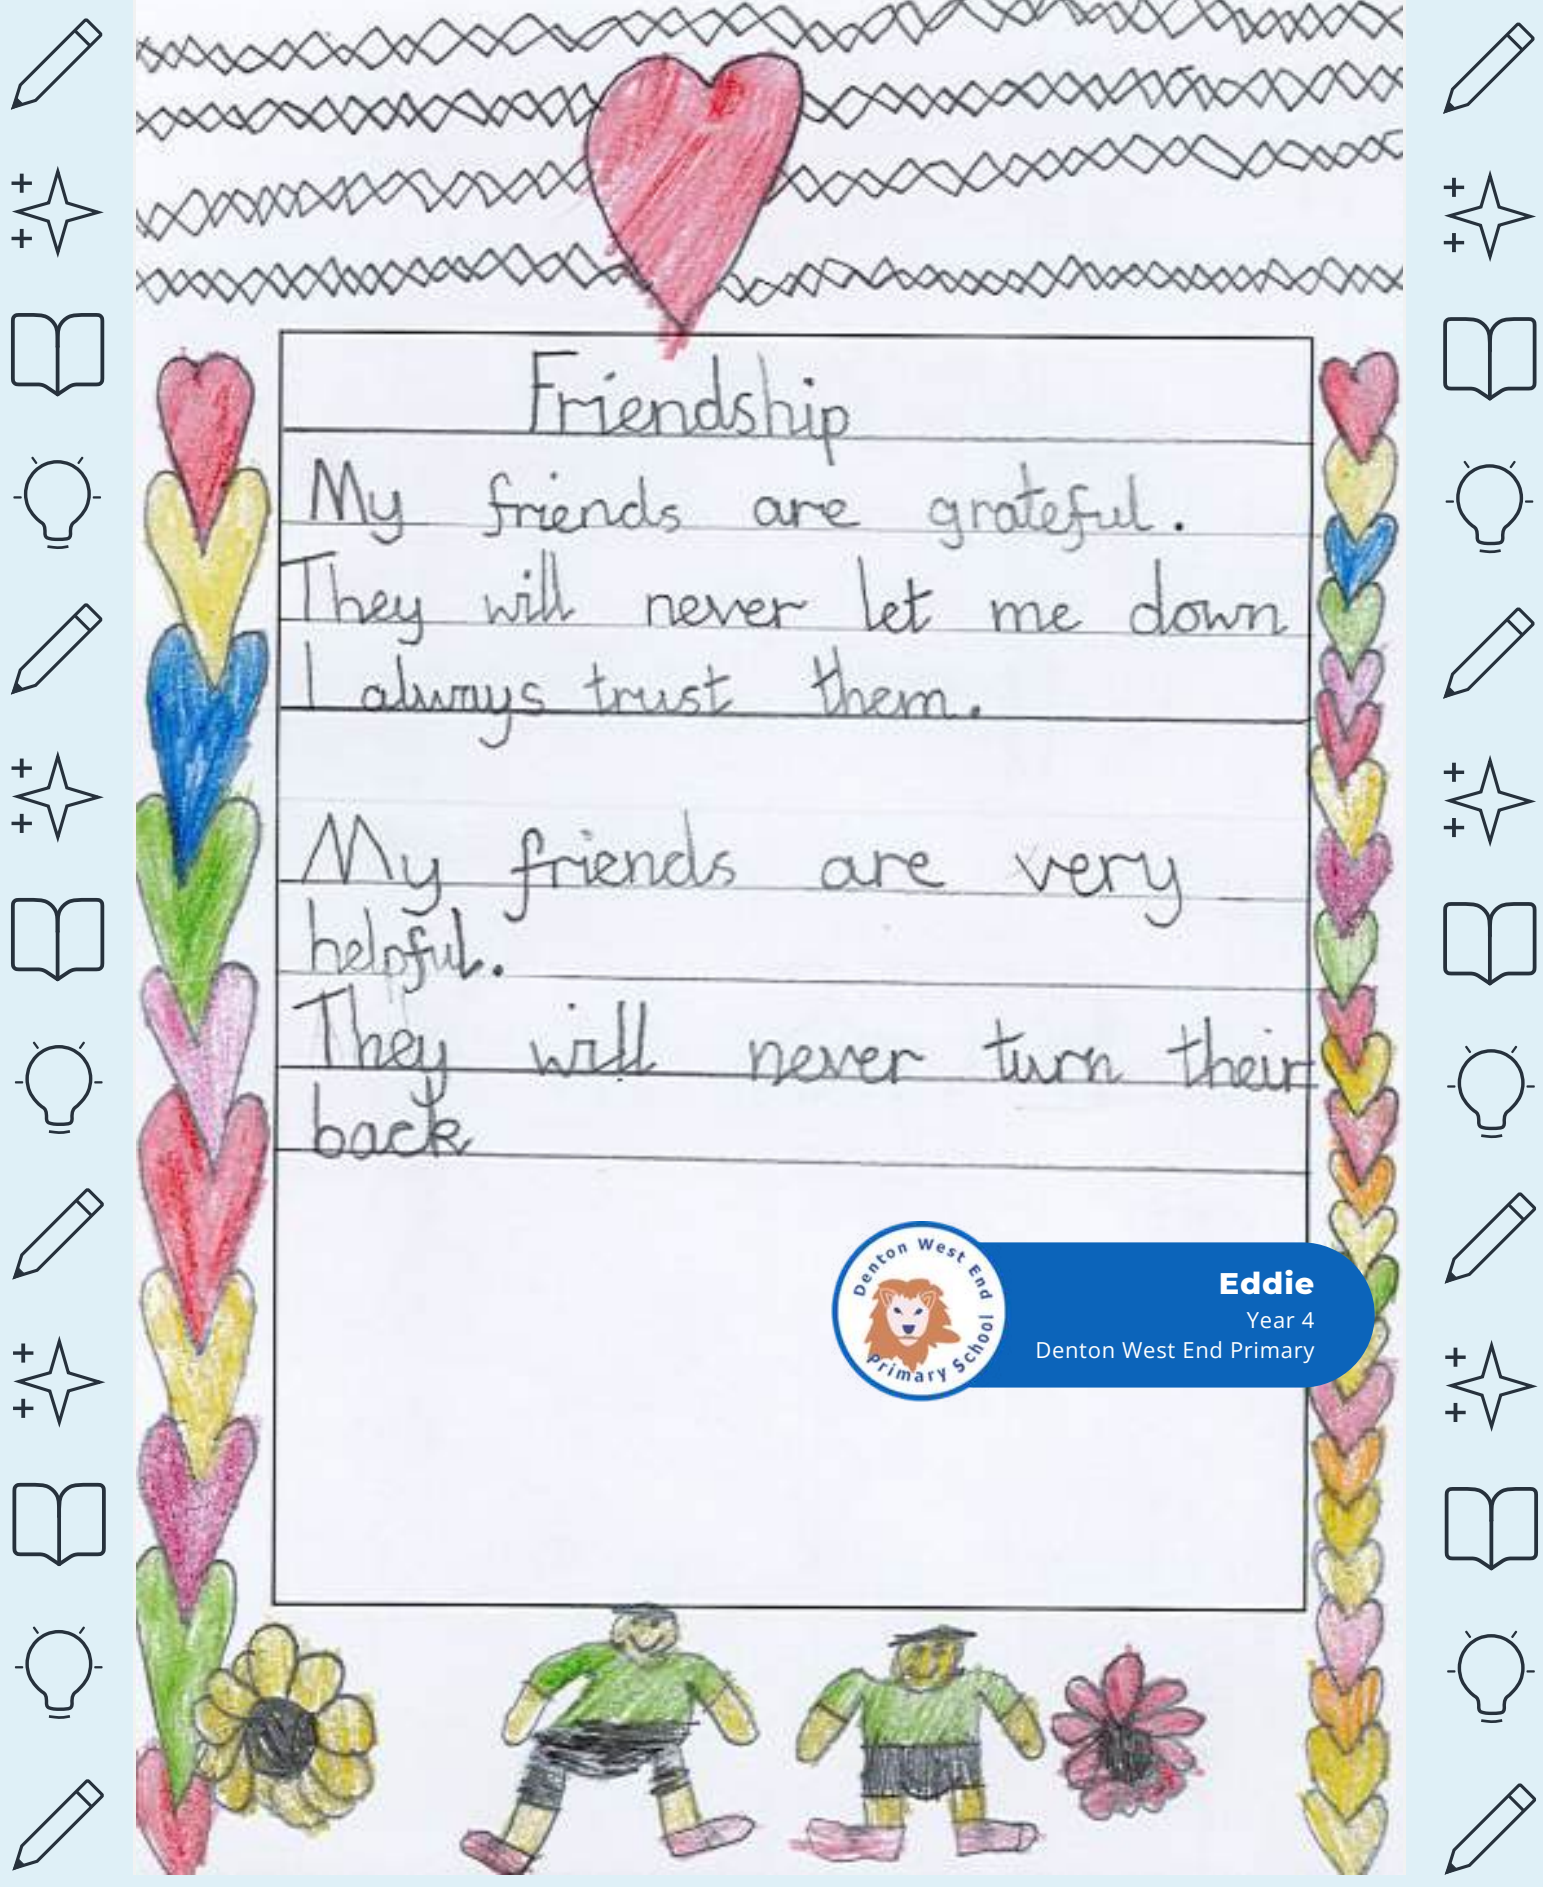 Friendship
My friends are grateful.
They will never let me down
I always trust them.
My friends are very
helpful.
They will never turn their
back
Denton West End
Primary School
Eddie
Year 4
Denton West End Primary